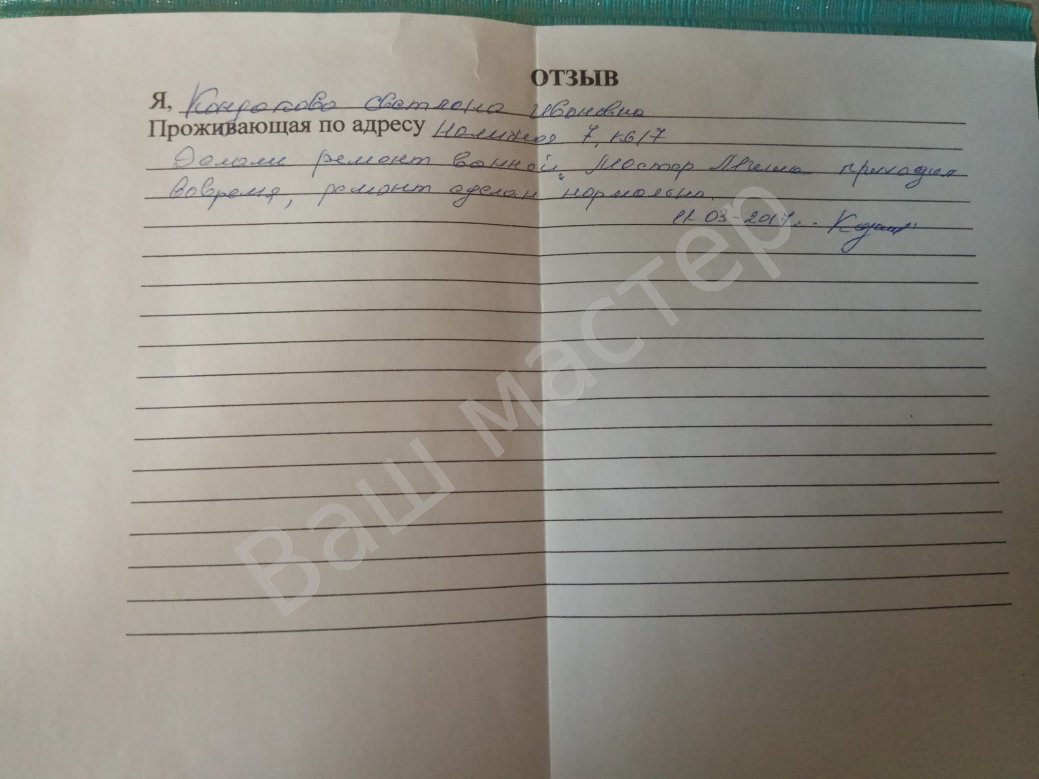 ОТЗЫВ
Я, Кондакова Светлана Ивановна
Проживающая по адресу 7, к6/7
Делали ремонт ванной. Мастер Миша приходил
вовремя, ремонт сделан нормально.
11-03-2017г.
Ваш мастер